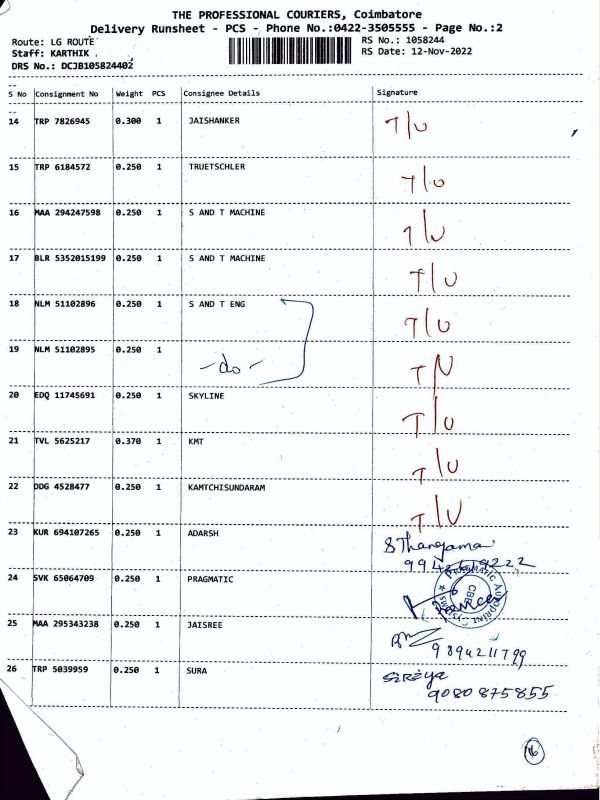 THE PROFESSIONAL COURIERS, Coimbatore
Delivery Runsheet - PCS - Phone No.:0422-3505555 - Page No.:2
Route: LG ROUTE RS No.: 1058244
Staff: KARTHIK . RS Date: 12-Nov-2022
DRS No.: DCJB105824402
S No Consignment No Weight PCS Consignee Details Signature
14 TRP 7826945 0.300 1 JAISHANKER T/U
15 TRP 6184572 0.250 1 TRUETSCHLER T/U
16 MAA 294247598 0.250 1 S AND T MACHINE T/U
17 BLR 5352015199 0.250 1 S AND T MACHINE T/U
18 NLM 51102896 0.250 1 S AND T ENG T/U
19 NLM 51102895 0.250 1 -do- T/U
20 EDQ 11745691 0.250 1 SKYLINE T/U
21 TVL 5625217 0.370 1 KMT T/U
22 DDG 4528477 0.250 1 KAMTCHISUNDARAM T/U
23 KUR 694107265 0.250 1 ADARSH S Thangama
24 SVK 65064709 0.250 1 PRAGMATIC
PRAGMATIC AUTOPRINT
CBE
25 MAA 295343238 0.250 1 JAISREE
9894211799
26 TRP 5039959 0.250 1 SURA
9080875855
16